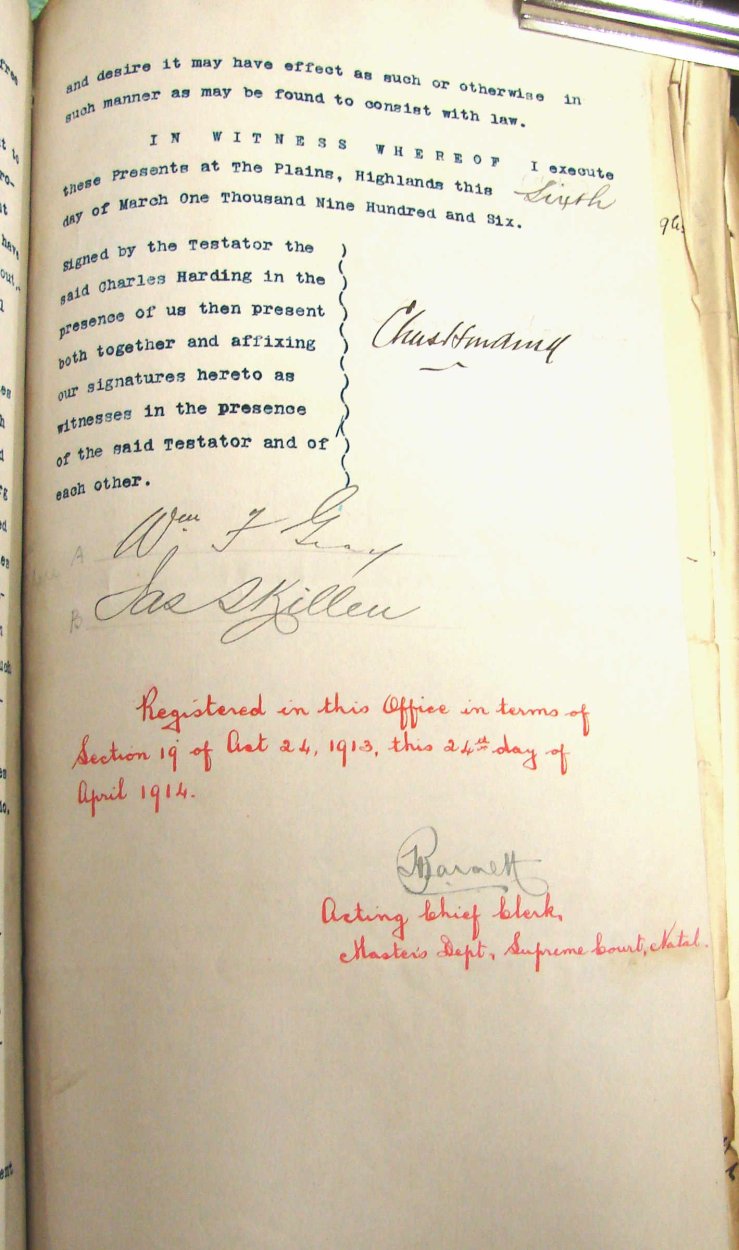 and desire it may have effect as such or otherwise in
such manner as may be found to consist with law.
IN WITNESS WHEREOF I execute
these Presents at The Plains, Highlands this Sixth
day of March One Thousand Nine Hundred and Six.
signed by the Testator the
said Charles Harding in the
presence of us then present
both together and affixing
our signatures hereto as
witnesses in the presence
of the said Testator and of
each other.
Chas Harding
A Wm F Gray
B Jas Skillen
Registered in this Office in terms of
Section 19 of Act 24, 1913, this 24th day of
April 1914.
Barnett
Acting Chief Clerk,
Master's Dept, Supreme Court, Natal.